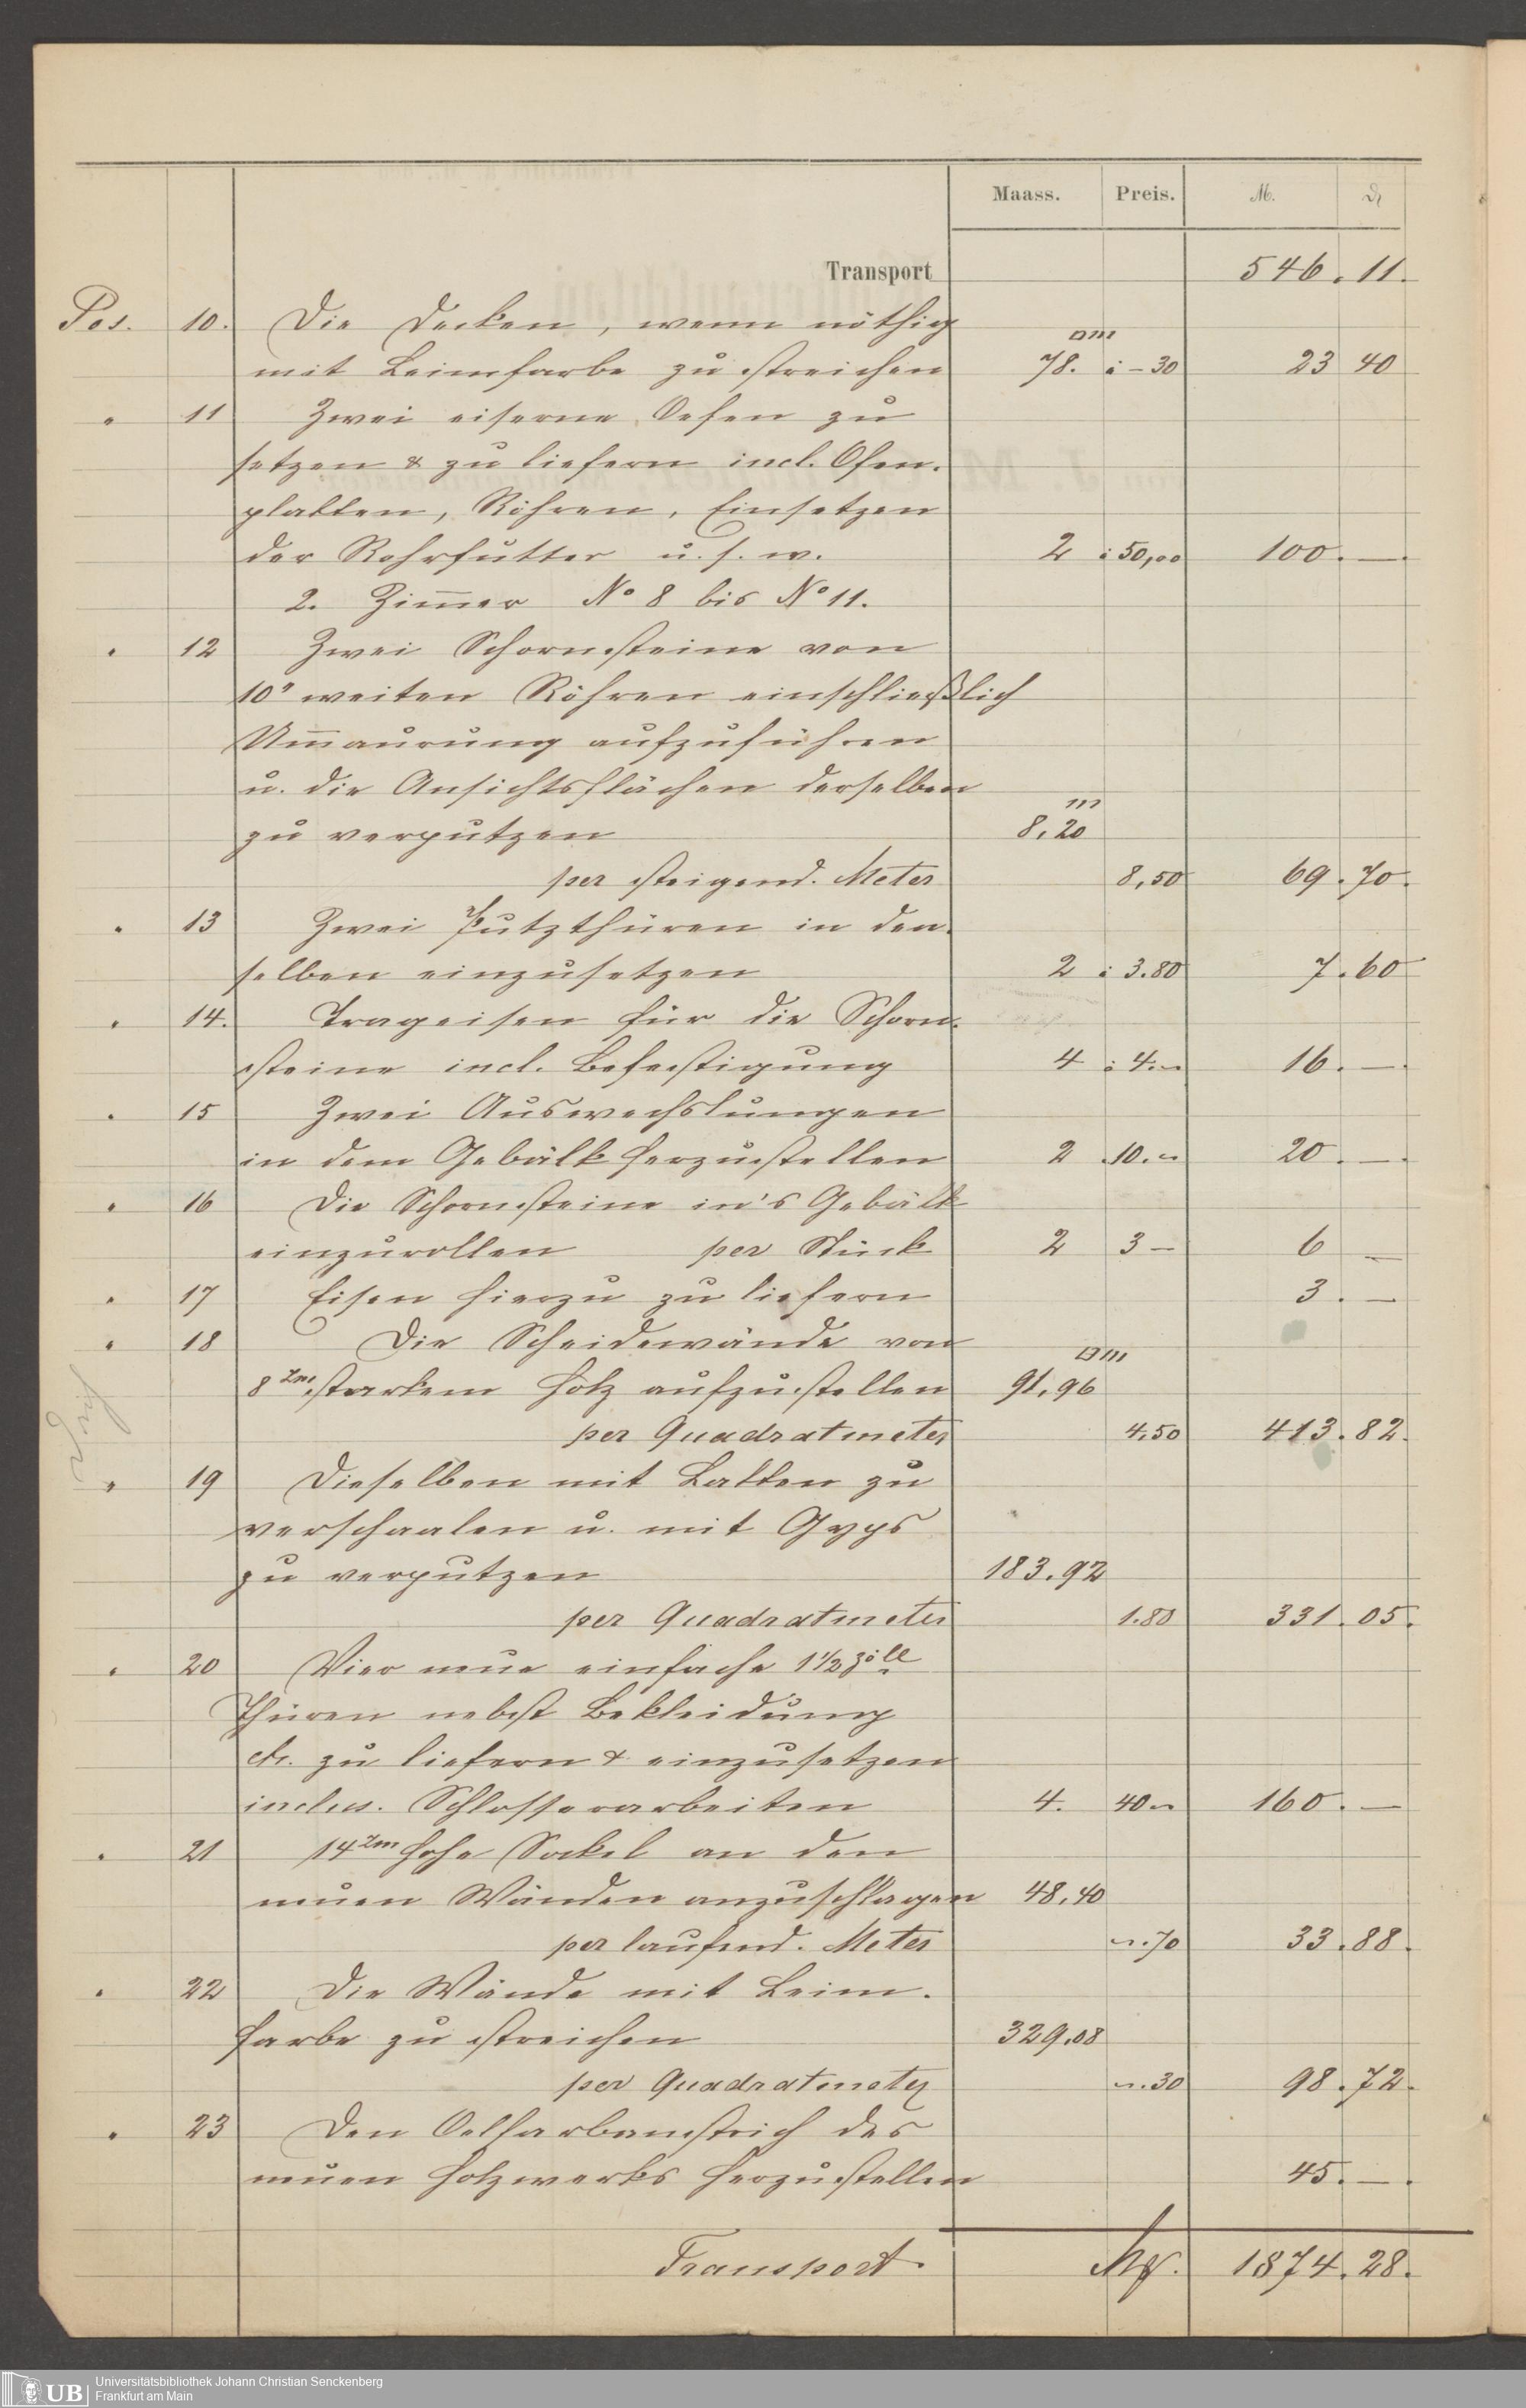 Maass. Preis. M. ₰
Transport 546. 11.
Pos. 10. Die Decken, wenn nöthig
mit Leimfarbe zu streichen 78. □m à – 30 23 40
" 11 Zwei eiserne Oefen zu
setzen & zu liefern incl. Ofen-
platten, Röhren, Einsetzen
der Rohrfutter u. s. w. 2 à 50,00 100. —.
2. Zimmer No 8 bis No 11.
" 12 Zwei Schornsteine von
10" weiten Röhren einschließlich
Um̄auerung aufzuführen
u. die Ansichtsflächen derselben
zu verputzen 8,20 m
per steigend. Meter 8,50 69. 70.
" 13 Zwei Putzthüren in den-
selben einzusetzen 2 à 3.80 7. 60
" 14. Trageisen für die Schorn-
steine incl. Befestigung 4 à 4.– 16. —.
" 15 Zwei Auswechslungen
in dem Gebälk herzustellen 2 10.– 20. —.
" 16 Die Schornsteine in's Gebälk
einzurollen per Stück 2 3 – 6 —
" 17 Eisen hierzu zu liefern 3. —
" 18 Die Scheidewände von
8 zm starkem Holz aufzustellen 91,96 □m
per Quadratmeter 4.50 413. 82.
" 19 Dieselben mit Latten zu
verschaalen u. mit Gyps
zu verputzen 183.92
per Quadratmeter 1.80 331. 05.
" 20 Vier neue einfache 1 1/2 zöll
Thüren nebst Bekleidung
etc. zu liefern & einzusetzen
inclus. Schlosserarbeiten 4. 40 – 160. —
" 21 14 zm hohe Sockel an den
neuen Wänden anzuschlagen 48,40
per laufend. Meter –.70 33. 88.
" 22 Die Wände mit Leim-
farbe zu streichen 329.08
per Quadratmeter –.30 98. 72.
" 23 Den Oelfarbanstrich des
neuen Holzwerks herzustellen 45. —.
Transport. Mk. 1874. 28.
UB Universitätsbibliothek Johann Christian Senckenberg
Frankfurt am Main